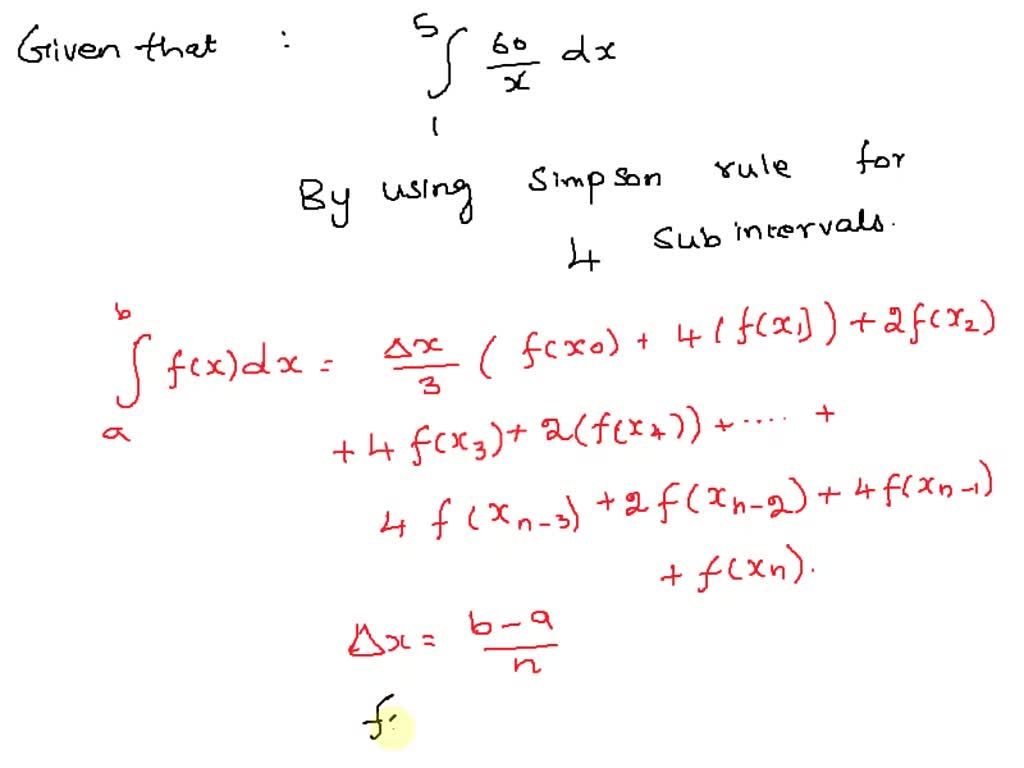 Given that : ∫₁⁵ 60/x dx
By using Simpson rule for
4 Sub intervals.
∫ₐᵇ f(x)dx = Δx/3 ( f(x₀) + 4(f(x₁)) + 2f(x₂)
+ 4 f(x₃) + 2(f(x₄)) + ..... +
4 f(xₙ₋₃) + 2f(xₙ₋₂) + 4f(xₙ₋₁)
+ f(xₙ).
Δx = b-a/n
f